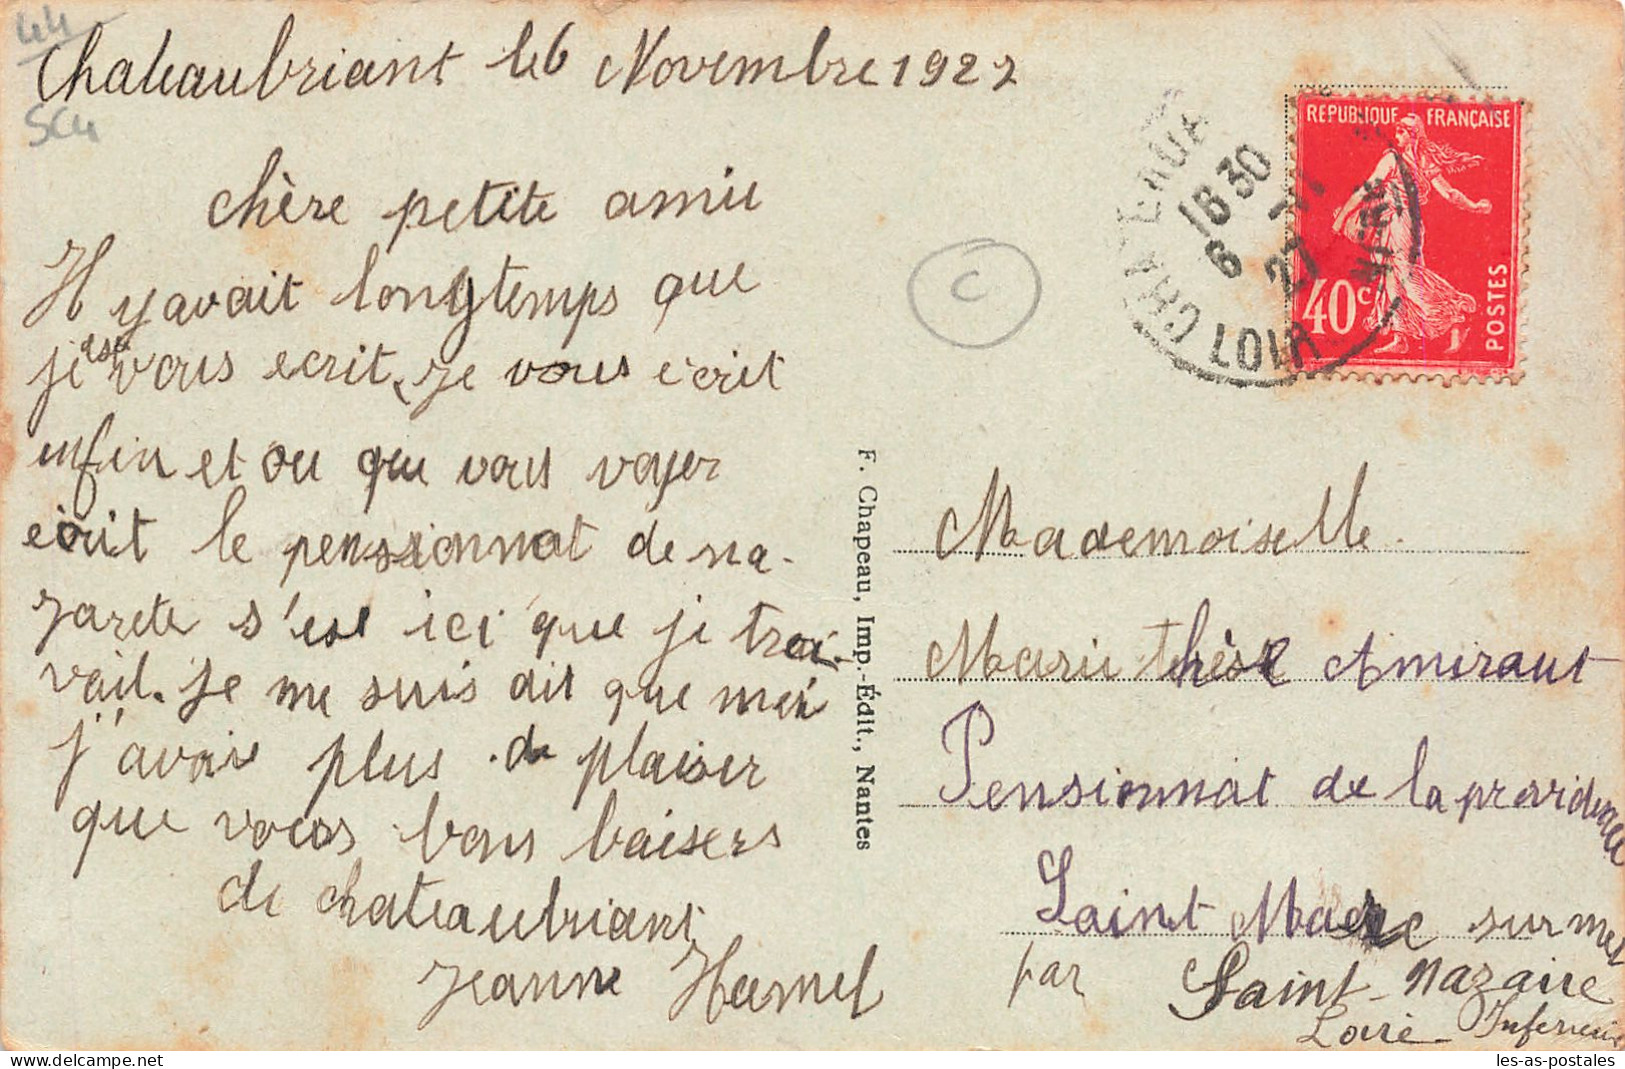 44
SC4
Chateaubriant le 6 Novembre 1927
chère petite amie
Il y avait longtemps que
je vous ecrit. je vous ecrit
enfin et ou que vous voyer
ecrit le pensionnat de na-
zarete s'est ici que je trai-
vail. je me suis dit que
j'avais plus de plaiser
que vous vous baisers
de chateaubriant
Jeanne Hamel
C
F. Chapeau, Imp.-Édit., Nantes
REPUBLIQUE FRANÇAISE
40c
POSTES
16 30
6 11
27
LOIR
Mademoiselle
Marie thèse Amiraut
Pensionnat de la providence
Saint Marc sur mer
par Saint-Nazaire
Loire-Inferieure
les-as-postales.com